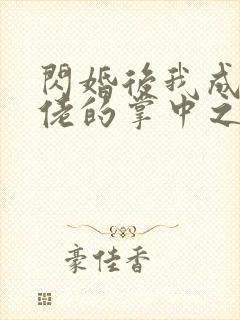 閃婚後我成
佬的掌中之
豪佳香